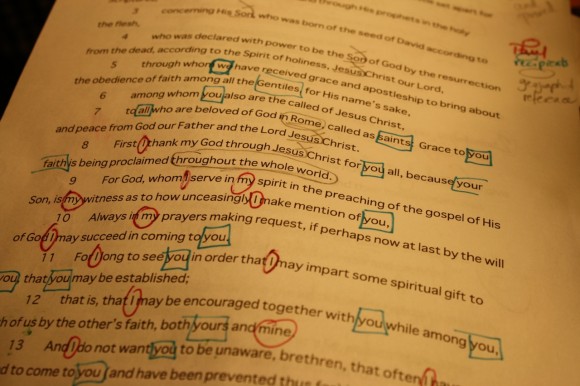 through His prophets in the holy
3 concerning His Son, who was born of the seed of David according to
the flesh,
4 who was declared with power to be the Son of God by the resurrection
from the dead, according to the Spirit of holiness, Jesus Christ our Lord,
5 through whom we have received grace and apostleship to bring about
the obedience of faith among all the Gentiles, for His name's sake,
6 among whom you also are the called of Jesus Christ,
7 to all who are beloved of God in Rome, called as saints: Grace to you
and peace from God our Father and the Lord Jesus Christ.
8 First, I thank my God through Jesus Christ for you all, because your
faith is being proclaimed throughout the whole world.
9 For God, whom I serve in my spirit in the preaching of the gospel of His
Son, is my witness as to how unceasingly I make mention of you,
10 Always in my prayers making request, if perhaps now at last by the will
of God I may succeed in coming to you.
11 For I long to see you in order that I may impart some spiritual gift to
you, that you may be established;
12 that is, that I may be encouraged together with you while among you,
of us by the other's faith, both yours and mine.
13 And I do not want you to be unaware, brethren, that often I
to come to you (and have been prevented thus
Paul
recipients
geographical
references